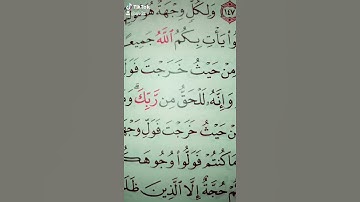 TikTok
١٤٧ وَلِكُلٍّ وِجْهَةٌ هُوَ مُوَلِّيـ
وا۟ يَأْتِ بِكُمُ ٱللَّهُ جَمِيعًا
مِنْ حَيْثُ خَرَجْتَ فَوَلِّ
وَإِنَّهُۥ لَلْحَقُّ مِن رَّبِّكَ ۗ وَمَـ
ـنْ حَيْثُ خَرَجْتَ فَوَلِّ وَجْهَـ
مَا كُنتُمْ فَوَلُّوا۟ وُجُوهَكُـ
ـمْ حُجَّةٌ إِلَّا ٱلَّذِينَ ظَلَـ